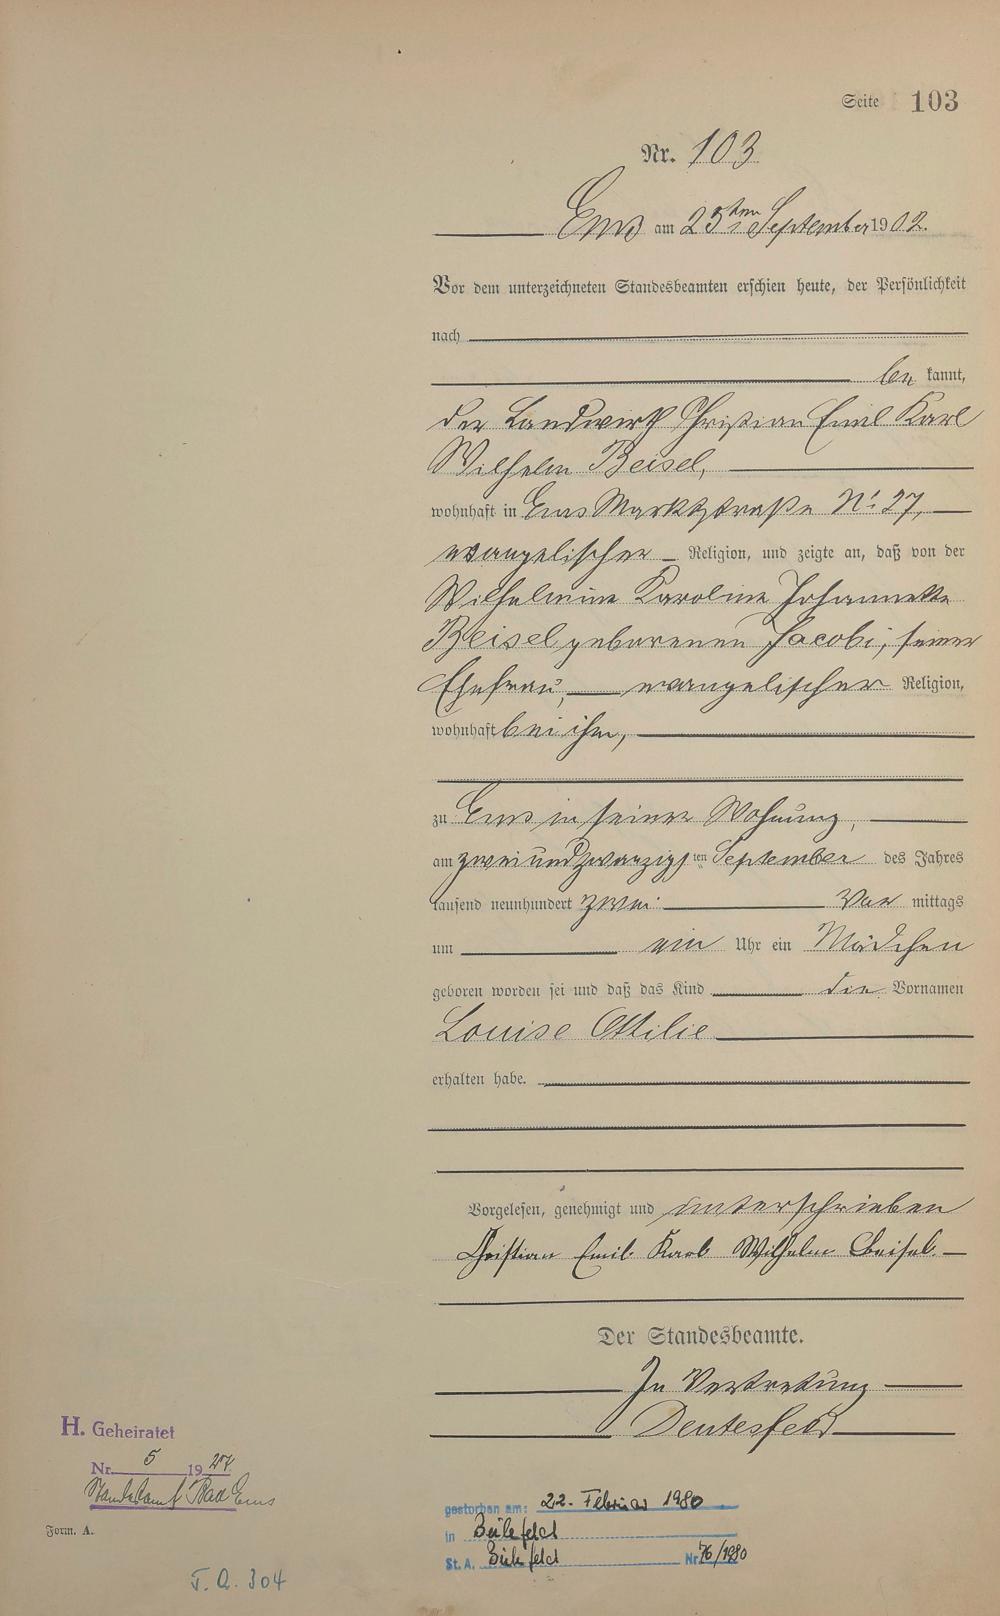 Seite 103
Nr. 103
Ems am 25ten September 1902.
Vor dem unterzeichneten Standesbeamten erschien heute, der Persönlichkeit
nach
be kannt,
der Landwirth Christian Emil Karl
Wilhelm Beisel,
wohnhaft in Ems Marktstraße No: 27,
evangelischer Religion, und zeigte an, daß von der
Wilhelmine Karoline Johannette
Beisel geborenen Jacobi, seiner
Ehefrau, evangelischer Religion,
wohnhaft bei ihm,
zu Ems in seiner Wohnung,
am zweiundzwanzigsten September des Jahres
tausend neunhundert zwei Vor mittags
um ein Uhr ein Mädchen
geboren worden sei und daß das Kind die Vornamen
Louise Ottilie
erhalten habe.
Vorgelesen, genehmigt und unterschrieben
Christian Emil Karl Wilhelm Beisel
Der Standesbeamte.
In Vertretung
H. Geheiratet
Nr. 5 19
Standesamt Bad Ems
Form. A.
gestorben am: 22. Februar 1980
in Bielefeld
St.A. Bielefeld Nr. 76/1980
304